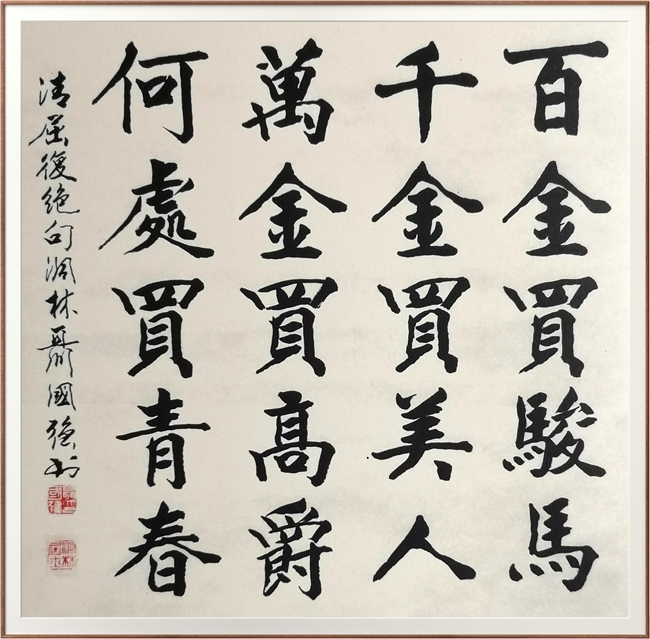 百金買駿馬
千金買美人
萬金買高爵
何處買青春
清屈復絕句 林聶國強书